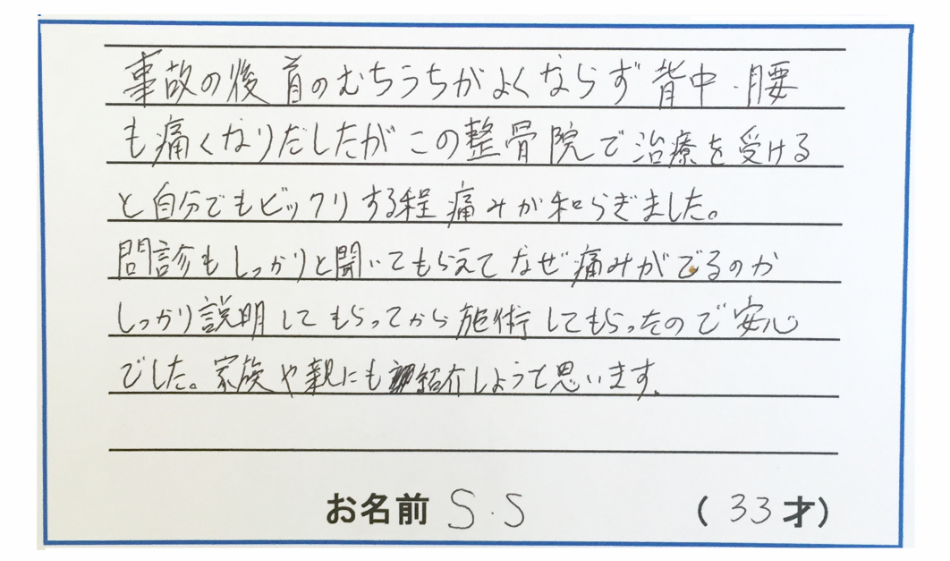 事故の後 首のむちうちがよくならず 背中・腰
も痛くなりだしたが この整骨院で治療を受ける
と自分でもビックリする程 痛みが和らぎました。
問診もしっかりと聞いてもらえて なぜ痛みがでるのか
しっかり説明してもらってから施術してもらったので安心
でした。家族や親にも紹介しようと思います。
お名前 S.S (33才)